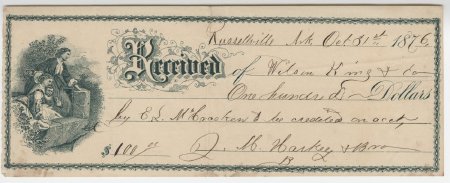 Russellville Ark Oct 31st 1876
Received of Wilson King & Co
One hundred Dollars
by E. L. McCracken to be credited on acct,
$100.00 J. M. Harkey & Bro